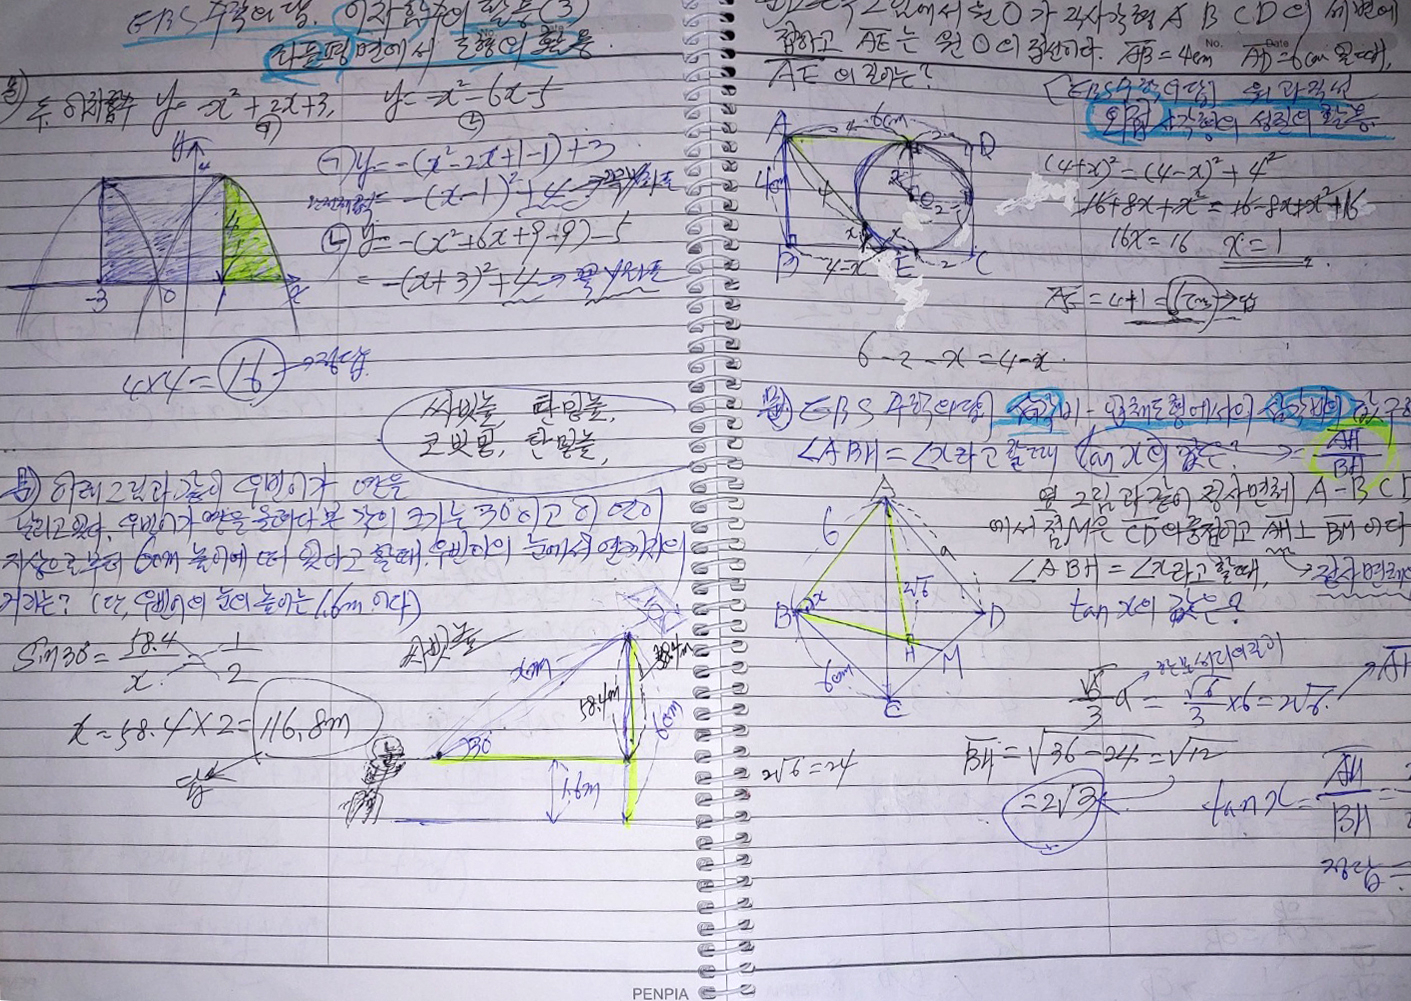 EBS 수학의 답. 이차함수의 활용(3)
좌표평면에서 도형의 활용
문) 두 이차함수 y=-x²+2x+3, y=-x²-6x-5
㉠ ㉡
㉠ y=-(x²-2x+1-1)+3
=-(x-1)²+4→꼭지점좌표
㉡ y=-(x²+6x+9-9)-5
=-(x+3)²+4→꼭지점좌표
y 4
-3 0 1 x
4×4=16→정답
싸빗높, 탄밑높,
코빗밑, 탄밑높,
문) 아래 그림과 같이 우빈이가 연을
날리고 있다. 우빈이가 연을 올려다 본 각의 크기는 30°이고 이 연이
지상으로부터 60m 높이에 떠 있다고 할때. 우빈이의 눈에서 연까지의
거리는? (단, 우빈이의 눈의 높이는 1.6m 이다)
sin30= 58.4/x = 1/2
싸빗높
xm 58.4m 60m
30°
1.6m
x=58.4×2=116.8m
답
AE는 원 O의 접선이다. AB=4cm AD=6cm 일때,
No. Date
AE의 길이는?
[EBS수학의답] 원과 직선
외접사각형의 성질의 활용
A 4 6cm 2 D
4cm 4 2 O 2
B 4-x x x E 2 C
(4+x)²=(4-x)²+4²
16+8x+x²=16-8x+x²+16
16x=16 x=1
AE=4+1=5cm→답
6-2-x=4-x.
문) EBS 수학의답] 삼각비-입체도형에서의 삼각비의 값 구하
∠ABH=∠x라고 할때 tan x의 값은? → AH/BH
옆 그림과 같이 정사면체 A-BCD
에서 점M은 CD의 중점이고 AH⊥BM이다
∠ABH=∠x라고 할때, →정사면체
tan x의 값은?
A 6 a
B x 2√6 D
H M
6cm C
√6/3 a = √6/3 ×6=2√6 → AH
한모서리의 길이
2√6=24
BH=√36-24=√12
=2√3
tan x= AH/BH =
정답
PENPIA